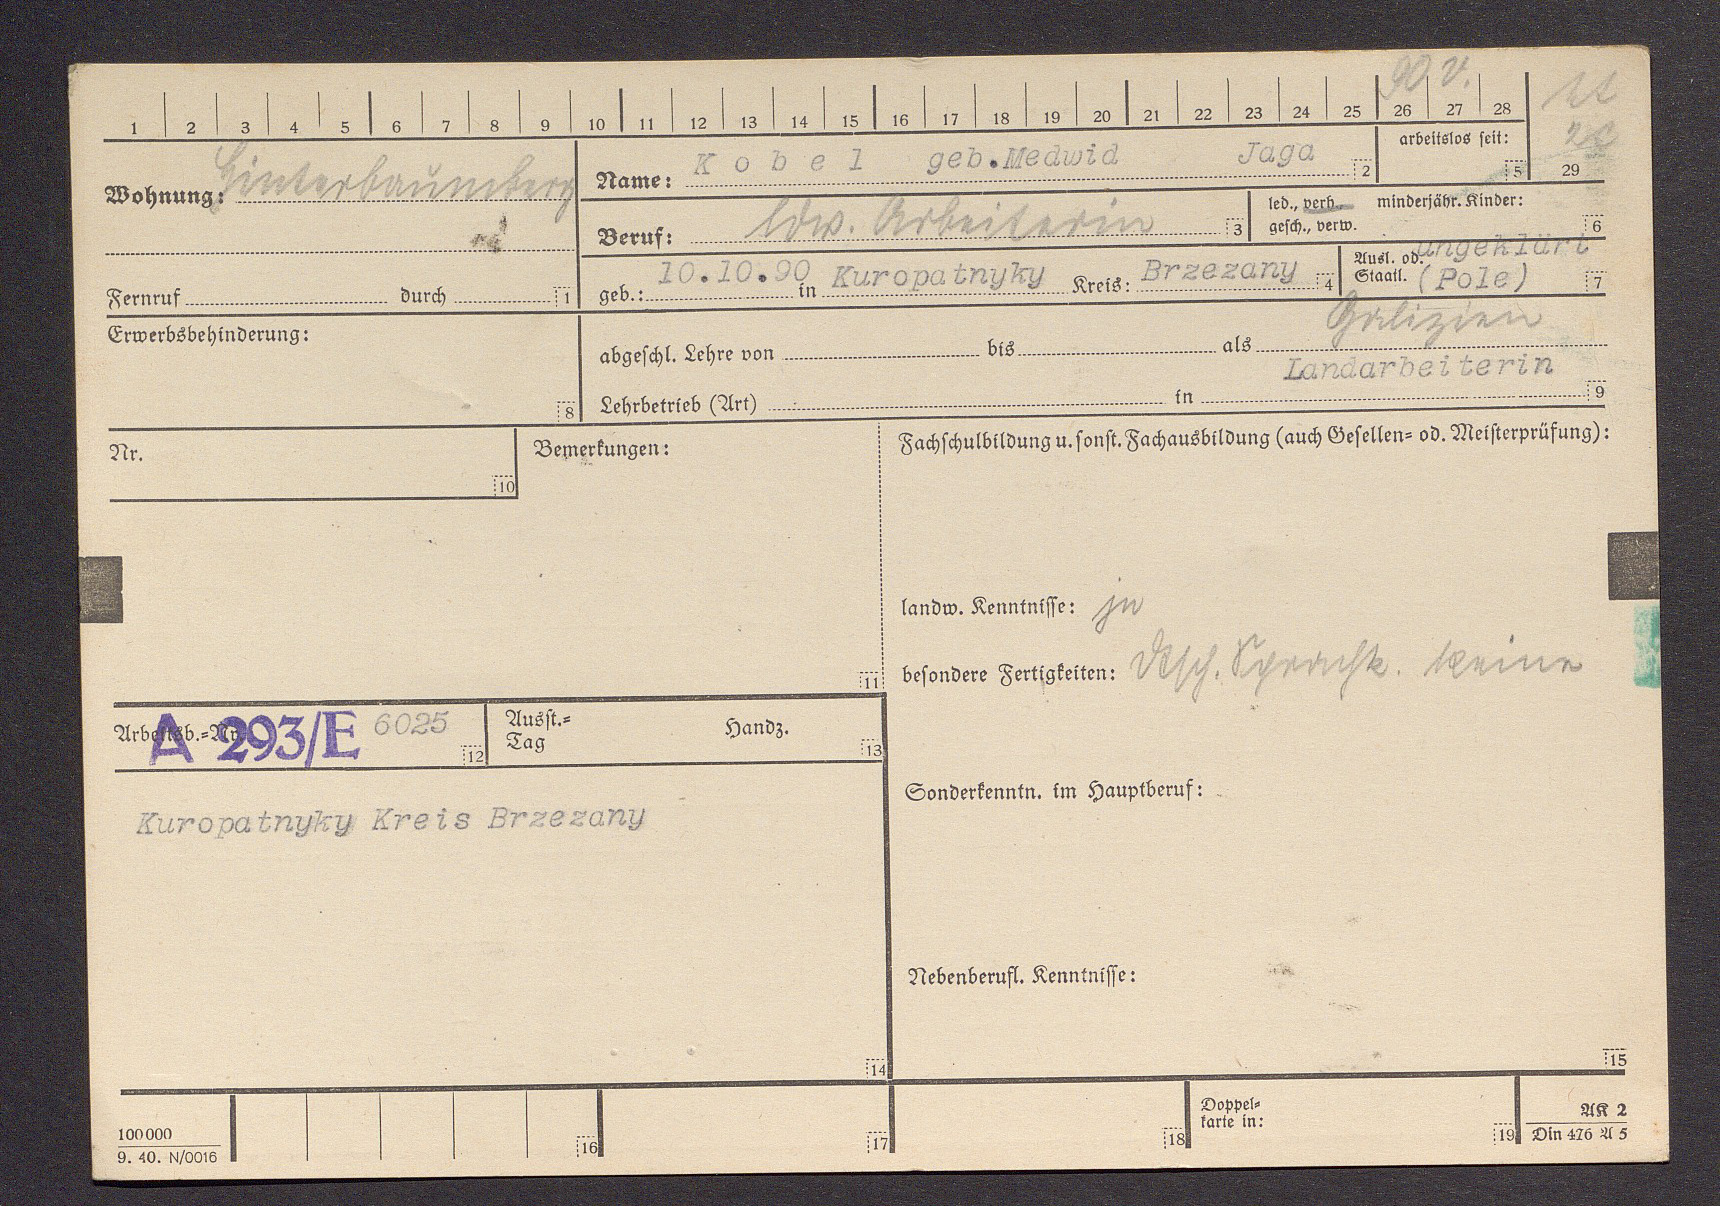 90 V.
1 2 3 4 5 6 7 8 9 10 11 12 13 14 15 16 17 18 19 20 21 22 23 24 25 26 27 28
29
Wohnung: Hinterbaumberg
Name: Kobel geb.Medwid Jaga 2
arbeitslos seit: 5
Beruf: ldw. Arbeiterin 3
led., verh. minderjähr. Kinder:
gesch., verw. 6
geb.: 10.10.90 in Kuropatnyky Kreis: Brzezany 4
Ausl. od. ungeklärt
Staatl. (Pole) 7
Fernruf durch 1
Erwerbsbehinderung: 8
Galizien
abgeschl. Lehre von bis als
Landarbeiterin
Lehrbetrieb (Art) in 9
Nr. 10
Bemerkungen: 11
Fachschulbildung u. sonst. Fachausbildung (auch Gesellen= od. Meisterprüfung):
landw. Kenntnisse: ja
besondere Fertigkeiten: Dtsch. Sprachk. keine
Arbeitsb.=Nr. A 293/E 6025 12
Ausst.=
Tag Handz. 13
Kuropatnyky Kreis Brzezany
14
Sonderkenntn. im Hauptberuf:
Nebenberufl. Kenntnisse:
15
100000
9. 40. N/0016
16 17 18
Doppel=
karte in: 19
AK 2
Din 476 A 5